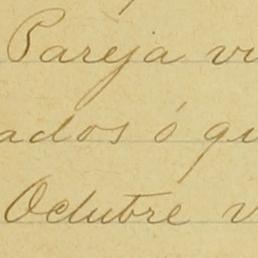 Pareja vi
ados ó qu
Octubre v